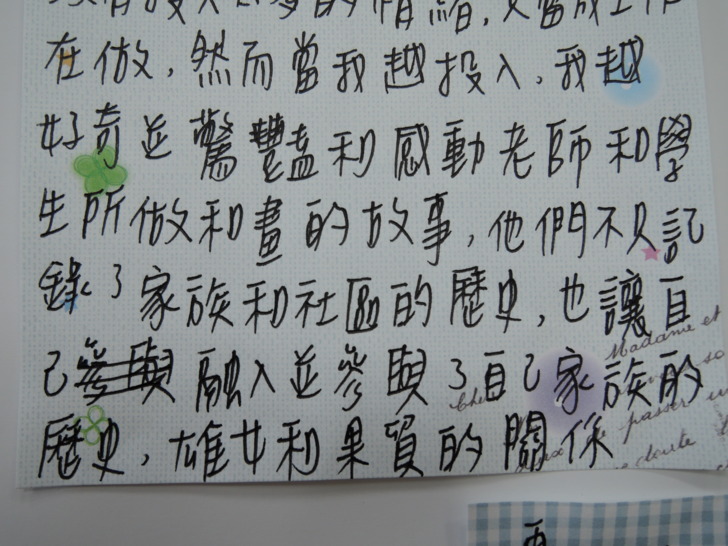 的情緒，又當成工作
在做，然而當我越投入，我越
好奇並驚豔和感動老師和學
生所做和畫的故事，他們不只記
錄了家族和社區的歷史，也讓自
己參與融入並參與了自己家族的
歷史，雄女和果貿的關係
Madame et
so
passer un
doute